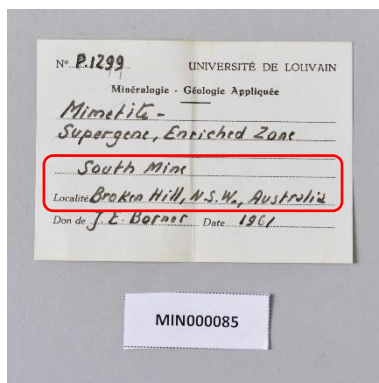 N° P.1299 UNIVERSITÉ DE LOUVAIN
Minéralogie - Géologie Appliquée
Mimetite -
Supergene, Enriched Zone
South Mine
Localité Broken Hill, N.S.W., Australia
Don de J. E. Barner Date 1961
MIN000085